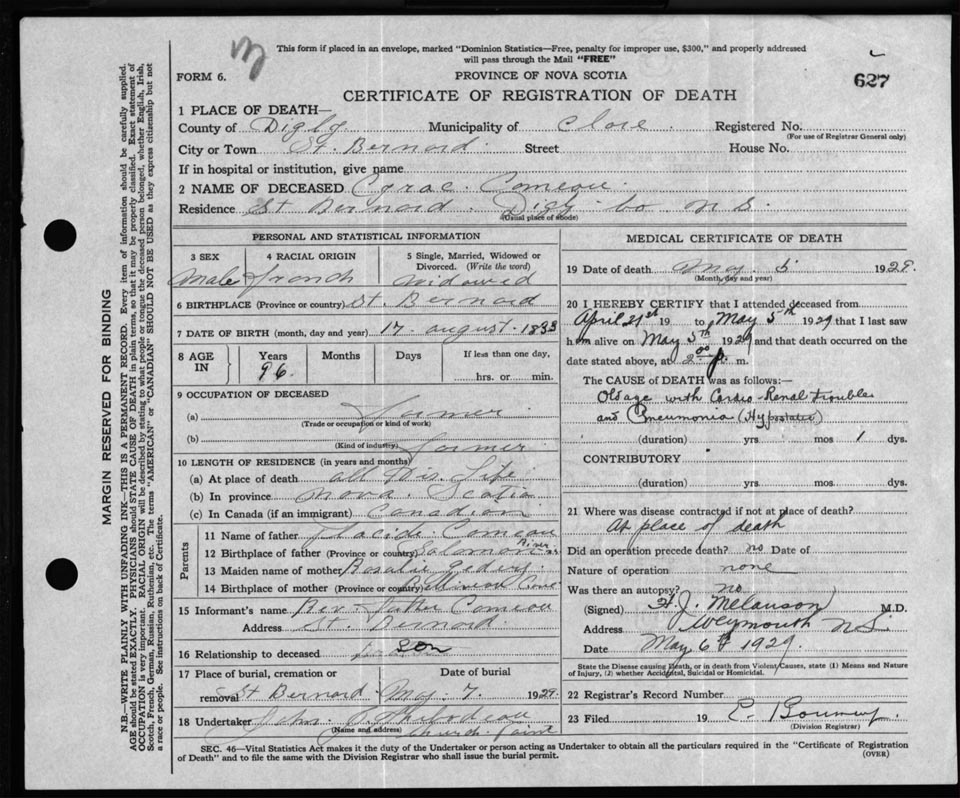 This form if placed in an envelope, marked "Dominion Statistics—Free, penalty for improper use, $300," and properly addressed
will pass through the Mail "FREE"
FORM 6.
PROVINCE OF NOVA SCOTIA
627
CERTIFICATE OF REGISTRATION OF DEATH
1 PLACE OF DEATH—
County of Digby Municipality of Clare Registered No.
(For use of Registrar General only)
City or Town St. Bernard Street House No.
If in hospital or institution, give name
2 NAME OF DECEASED Comeau
Residence St Bernard Digby Co N S.
(Usual place of abode)
PERSONAL AND STATISTICAL INFORMATION
3 SEX 4 RACIAL ORIGIN 5 Single, Married, Widowed or
Divorced. (Write the word)
Male french Widowed
6 BIRTHPLACE (Province or country) St. Bernard
7 DATE OF BIRTH (month, day and year) 17 august 1833
8 AGE IN Years Months Days If less than one day,
96. hrs. or min.
9 OCCUPATION OF DECEASED
(a) farmer
(Trade or occupation or kind of work)
(b) farmer
(Kind of industry)
10 LENGTH OF RESIDENCE (in years and months)
(a) At place of death all his Life
(b) In province Nova Scotia
(c) In Canada (if an immigrant) Canadian
Parents
11 Name of father Placide Comeau
12 Birthplace of father (Province or country) Salmon River
13 Maiden name of mother Rosalie
14 Birthplace of mother (Province or country) Belliveau Cove
15 Informant's name Rev. father Comeau
Address St. Bernard
16 Relationship to deceased son
17 Place of burial, cremation or Date of burial
removal St Bernard May 7. 1929.
18 Undertaker John Thibodeau
(Name and address) Church Point
MEDICAL CERTIFICATE OF DEATH
19 Date of death May 5 1929.
(Month, day and year)
20 I HEREBY CERTIFY that I attended deceased from
April 21st 19 to May 5th 1929 that I last saw
him alive on May 5th 1929 and that death occurred on the
date stated above, at 2 00 p. m.
The CAUSE OF DEATH was as follows:—
Old age with Cardio-Renal troubles
and Pneumonia (Hypostatic)
(duration) yrs mos 1 dys.
CONTRIBUTORY
(duration) yrs. mos. dys.
21 Where was disease contracted if not at place of death?
At place of death
Did an operation precede death? no Date of
Nature of operation none
Was there an autopsy? no
(Signed) J. Melanson M.D.
Address Weymouth N.S.
Date May 6th 1929.
State the Disease causing Death, or in death from Violent Causes, state (1) Means and Nature
of Injury, (2) whether Accidental, Suicidal or Homicidal.
22 Registrar's Record Number
23 Filed 19 E.
(Division Registrar)
SEC. 46—Vital Statistics Act makes it the duty of the Undertaker or person acting as Undertaker to obtain all the particulars required in the "Certificate of Registration
of Death" and to file the same with the Division Registrar who shall issue the burial permit.
(OVER)
MARGIN RESERVED FOR BINDING
N.B.—WRITE PLAINLY WITH UNFADING INK—THIS IS A PERMANENT RECORD. Every item of information should be carefully supplied.
AGE should be stated EXACTLY. PHYSICIANS should STATE CAUSE OF DEATH in plain terms, so that it may be properly classified. Exact statement of
OCCUPATION is very important. RACIAL ORIGIN will be described by stating to what people or tongue the deceased person belonged, whether English, Irish,
Scotch, French, German, Russian, Ruthenian, etc. The terms "AMERICAN" or "CANADIAN" SHOULD NOT BE USED as they express citizenship but not
a race or people. See instructions on back of Certificate.